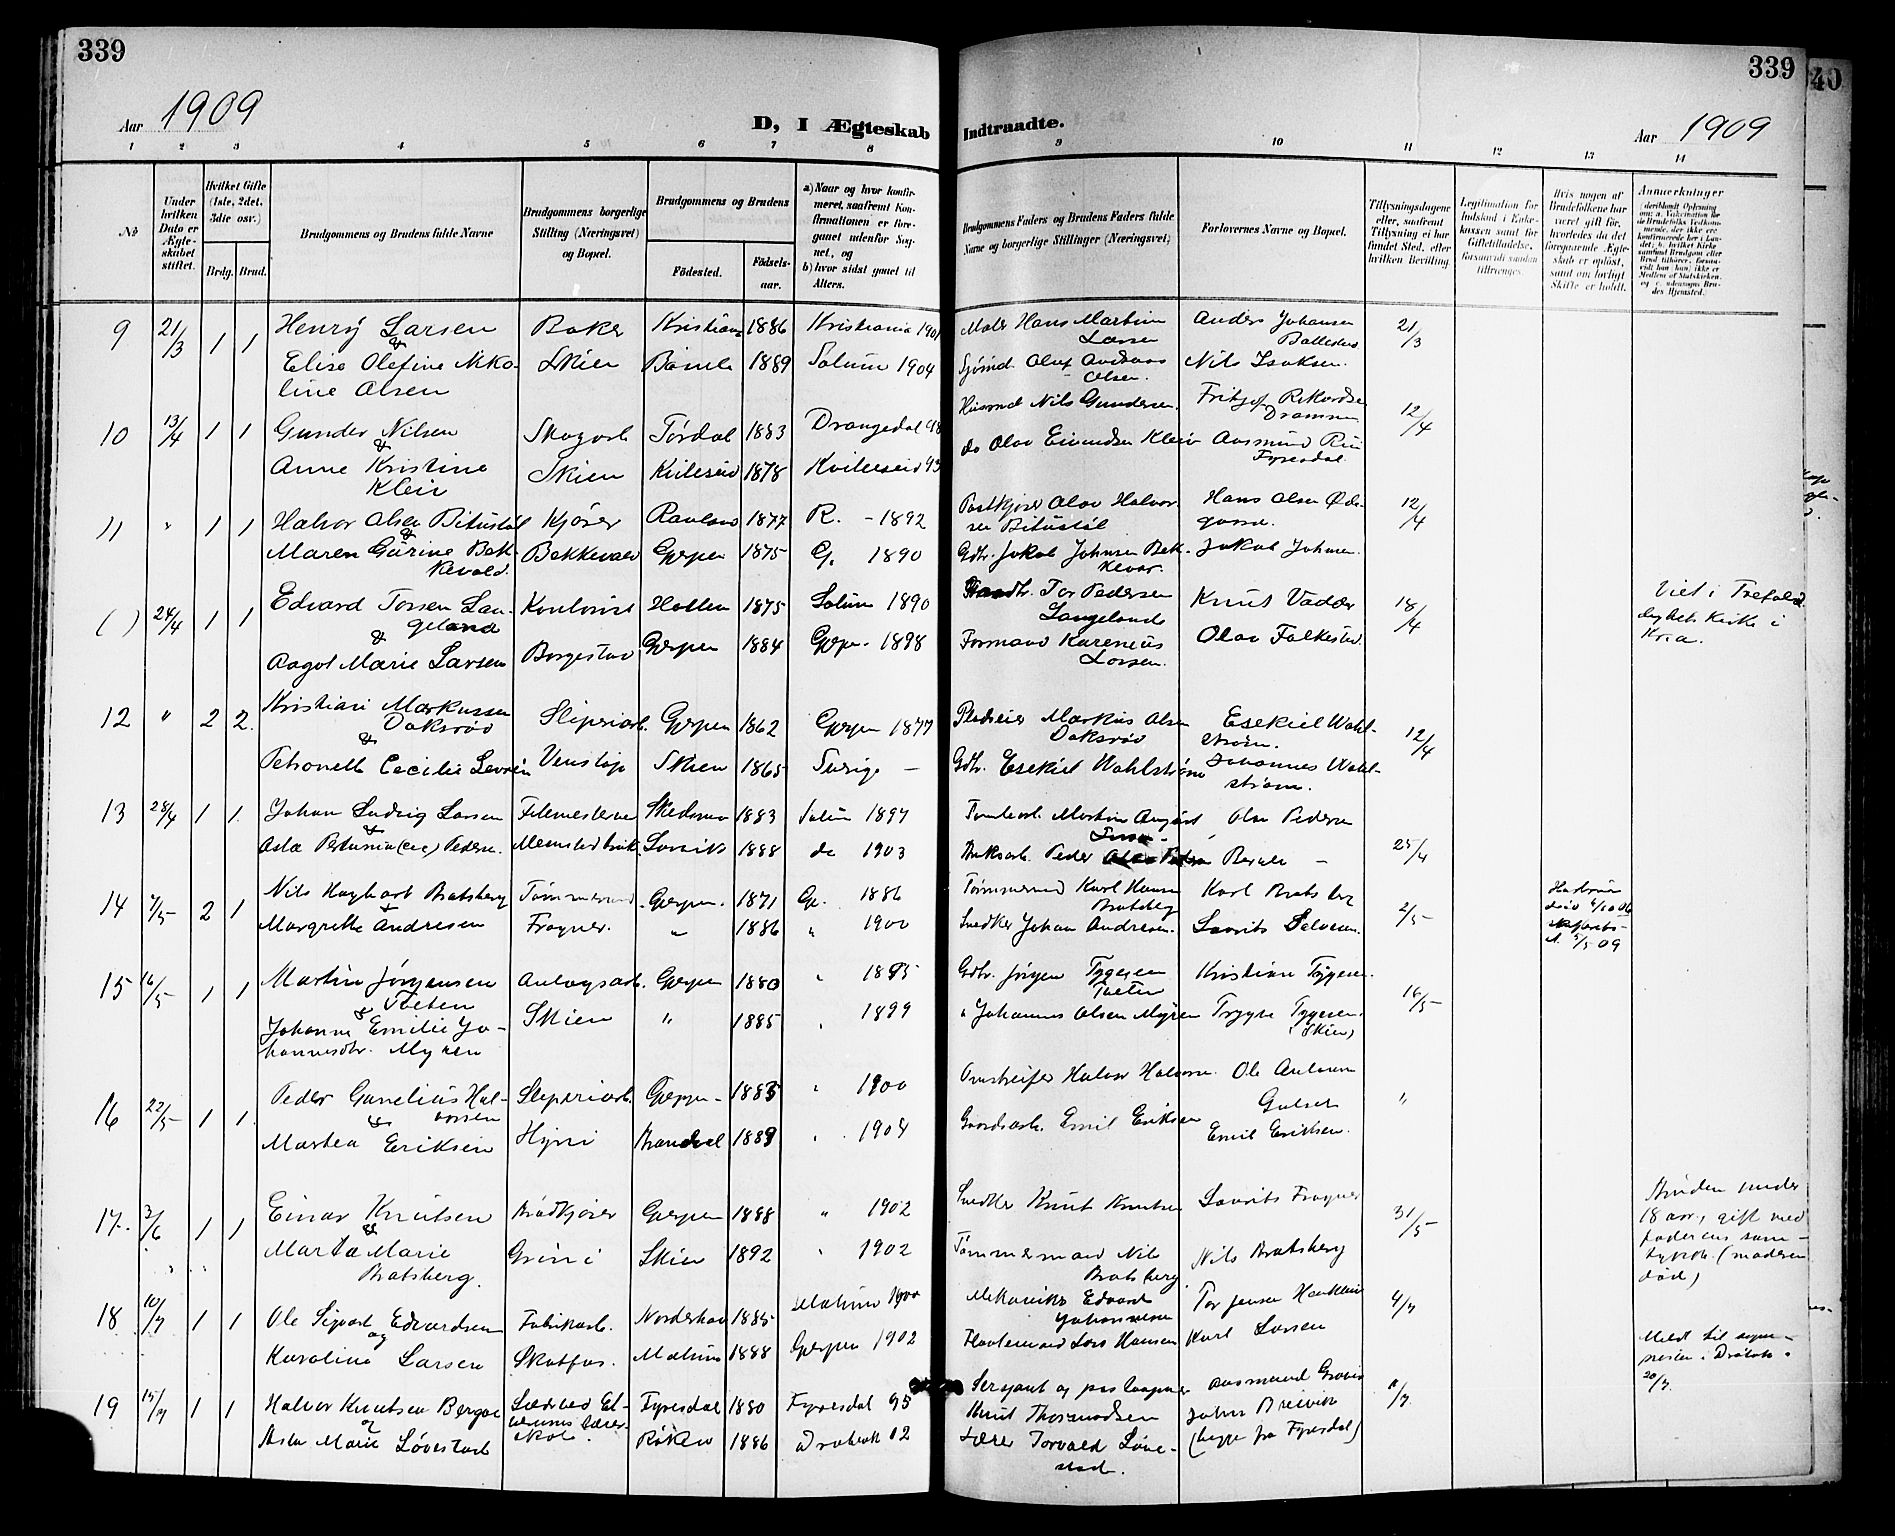 339
339
40
Aar 1909
D, I Ægteskab
Indtraadte.
Aar 1909
1 2 3 4 5 6 7 8 9 10 11 12 13 14
No
Under hvilken Dato er Ægteskabet stiftet.
Hvilket Gifte (1ste, 2det, 3die osv.)
Brdg. Brud.
Brudgommens og Brudens fulde Navne
Brudgommens borgerlige Stilling (Næringsvei) og Bopæl.
Brudgommens og Brudens
Fødested.
Fødselsaar.
a) Naar og hvor konfirmeret, saafremt Konfirmationen er foregaaet udenfor Sognet, og
b) hvor sidst gaaet til Alters.
Brudgommens Faders og Brudens Faders fulde Navne og borgerlige Stillinger (Næringsvei)
Forlovernes Navne og Bopæl.
Tillysningsdagene eller, saafremt Tillysning ei har fundet Sted, efter hvilken Bevilling.
Legitimation for Indskud i Enkekassen samt for Giftetilladelse, forsaavidt saadan tiltrænges.
Hvis nogen af Brudefolkene har været gift før, hvorledes da det foregaaende Ægteskab er opløst, samt om lovligt Skifte er holdt.
Anmærkninger
9 21/3 1 1 Henry Larsen Baker Kristiania 1886 Kristiania 1901 Maler Hans Martin Larsen Anders Johansen 21/3
& Elise Olefine Nikoline Olsen Skien Bamle 1889 Solum 1904 Sjømd. Oluf Andreas Olsen. Nils Isaksen.
10 13/4 1 1 Gunder Nilsen Skogarb Tørdal 1883 Drangedal 98 Husmd Nils Gundersen. Fritjof Rikardsen Drammen 12/4
& Anne Kristine Kleiv Skien Kviteseid 1878 Kviteseid 93 do Olav Eivindsen Kleiv Aasmund Rui Fyresdal
11 " 1 1 Halvor Olsen Bitustøl Kjører Rauland 1877 R. - 1892 Postkjører Olav Halvorsen Bitustøl Hans Olsen Ødegaard. 12/4
& Maren Gurine Bekkevold. Bekkevold Gjerpen 1875 G. 1890 Gdbr. Jakob Johnsen Bekkevar. Jakob Johnsen.
( ) 24/4 1 1 Edvard Torsen Langeland Kontorist Holla 1875 Solum 1890 Tor Pedersen Langeland Knut Vadder 18/4 Viet i Trefoldighets Kirke i Kria.
& Aagot Marie Larsen Borgestad Gjerpen 1884 Gjerpen. 1898 Formand Karenius Larsen. Olav Falkestad.
12 " 2 2. Kristian Markussen Doksrød Sliperiarb. Gjerpen 1862 Gjerpen 1877 Pladseier Markus Olsen Doksrød Esekiel Wahlstrøm. 12/4
& Petronelle Cecilie Levin Venstøp Skien 1865 Sverige - Gdbr. Esekiel Wahlstrøm Johannes Wahlstrøm.
13 28/4 1 1. Johan Ludvig Larsen Filemester Skedsmo 1883 Solum 1897 Tomtearb. Martin August Larsen Olaf Pedersen
& Asta Petunia (Eee) Pedersen. Menstadbruk. Larvik 1888 do 1903 Bruksarb. Peder Berale - 25/4
14 7/5 2 1 Nils Haghart Bratsberg Tømmermd. Gjerpen. 1871 Gj. 1886 Tømmermd Karl Hansen Bratsberg Karl Bratsberg 2/5
& Margrethe Andresen Frogner. " 1886 " 1900 Snedker Johan Andresen. Laurits Selvesen. 5/5 09
15 16/5 1 1 Martin Jørgensen Tveten Anlægsarb. Gjerpen 1880 " 1895 Gdbr. Jørgen Tygesen Tveten Kristian Tygesen. 16/5
& Johanne Emilie Johannesdtr. Myren Skien " 1885 " 1899 " Johannes Olsen Myren Trygve Tygesen. (Skien)
16 22/5 1 1. Peder Gunelius Halvorsen Sliperiarb. Gjerpen - 1883 " 1900 Halvor Halvorsen. Ole Aulesen Gulset "
& Martea Eriksen Hyni Brandval 1889 " 1904 Gaardsarb. Emil Eriksen Emil Eriksen.
17. 3/6 1 1 Einar Knutsen Brødkjører Gjerpen 1888 " 1902 Snedker Knut Knutsen Laurits Frogner 31/5 Bruden under 18 aar, gift med faderens samtykke (moderen død)
& Marta Marie Bratsberg. Grini Skien 1892 " 1902 Tømmermand Nils Bratsberg Nils Bratsberg
18 10/7 1 1 Ole Sigvart Edvardsen Fabrikarb. Norderhov 1885 Mælum 1900 Mekaniker Edvard Johannesen Tor Jensen Haukleiv 4/7
og Karoline Larsen Skotfos. Mælum 1888 Gjerpen 1902 Fløtermand Lars Hansen Karl Larsen
19 15/7 1 1 Halvor Knutsen Bergan Lærer ved lærerskole Fyresdal 1880 Fyresdal 95 Sergeant og Knut Thormodsen Aasmund Groven 11/7 Meldt til sognepresten i Drøbak. 20/7.
og Asta Marie Løvestad Røken 1886 Drøbak 02 Lærer Torvald Løvestad. John Breivik (begge fra Fyresdal)